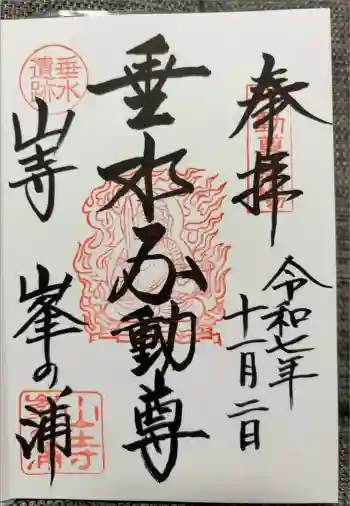 奉拝
令和七年
十一月二日
垂水不動尊
垂水
遺跡
山寺
峯の浦
山寺
峯浦